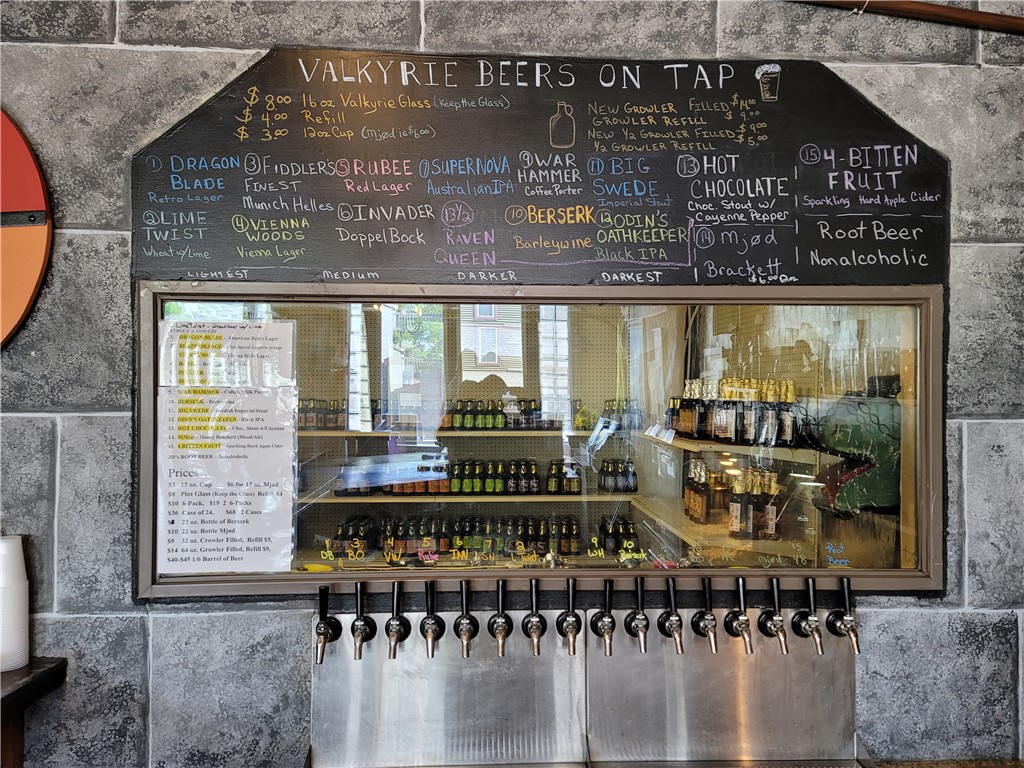 VALKYRIE BEERS ON TAP
$8.00 16oz Valkyrie Glass (Keep the Glass)
$4.00 Refill
$3.00 12oz Cup (Mjød is $6.00)
NEW GROWLER FILLED $14.00
GROWLER REFILL $9.00
NEW 1/2 GROWLER FILLED $9.00
1/2 GROWLER REFILL $5.00
① DRAGON
BLADE
Retro Lager
② LIME
TWIST
Wheat w/Lime
③ FIDDLERS
FINEST
Munich Helles
④ VIENNA
WOODS
Vienna Lager
⑤ RUBEE
Red Lager
⑥ INVADER
DoppelBock
⑦ SUPERNOVA
Australian IPA
⑬½
RAVEN
QUEEN
⑨ WAR
HAMMER
Coffee Porter
⑩ BERSERK
Barleywine
⑪ BIG
SWEDE
Imperial Stout
⑫ ODIN'S
OATHKEEPER
Black IPA
⑬ HOT
CHOCOLATE
Choc. Stout w/
Cayenne Pepper
⑭ Mjød
Brackett
$6.00
⑮ 4-BITTEN
FRUIT
Sparkling Hard Apple Cider
Root Beer
Nonalcoholic
LIGHTEST MEDIUM DARKER DARKEST
1. DRAGON BLADE - American Retro Lager
9. WAR HAMMER - Coffee, Milk Porter
10. BERSERK - Barleywine
11. BIG SWEDE - Swedish Imperial Stout
12. ODIN'S OATHKEEPER - Black IPA
13. HOT CHOCOLATE - Choc. Stout w/Cayenne
14. MJØD - Honey Brackett (Mead/Ale)
15. 4 BITTEN FRUIT - Sparkling Hard Apple Cider
JD's ROOT BEER - Nonalcoholic
Prices
$3 12 oz. Cup $6 for 12 oz. Mjød
$8 Pint Glass (Keep the Glass) Refill $4
$10 6-Pack, $19 2 6-Packs
$36 Case of 24, $68 2 Cases
22 oz. Bottle of Berserk
$10 22 oz. Bottle Mjød
$9 32 oz. Crowler Filled, Refill $5,
$14 64 oz. Growler Filled, Refill $9,
$40-$45 1/6 Barrel of Beer
1 DB
3 BO
4 VW
5 Rubee
6 INV
7 SN
9 WH
10 Berserk
Root
Beer